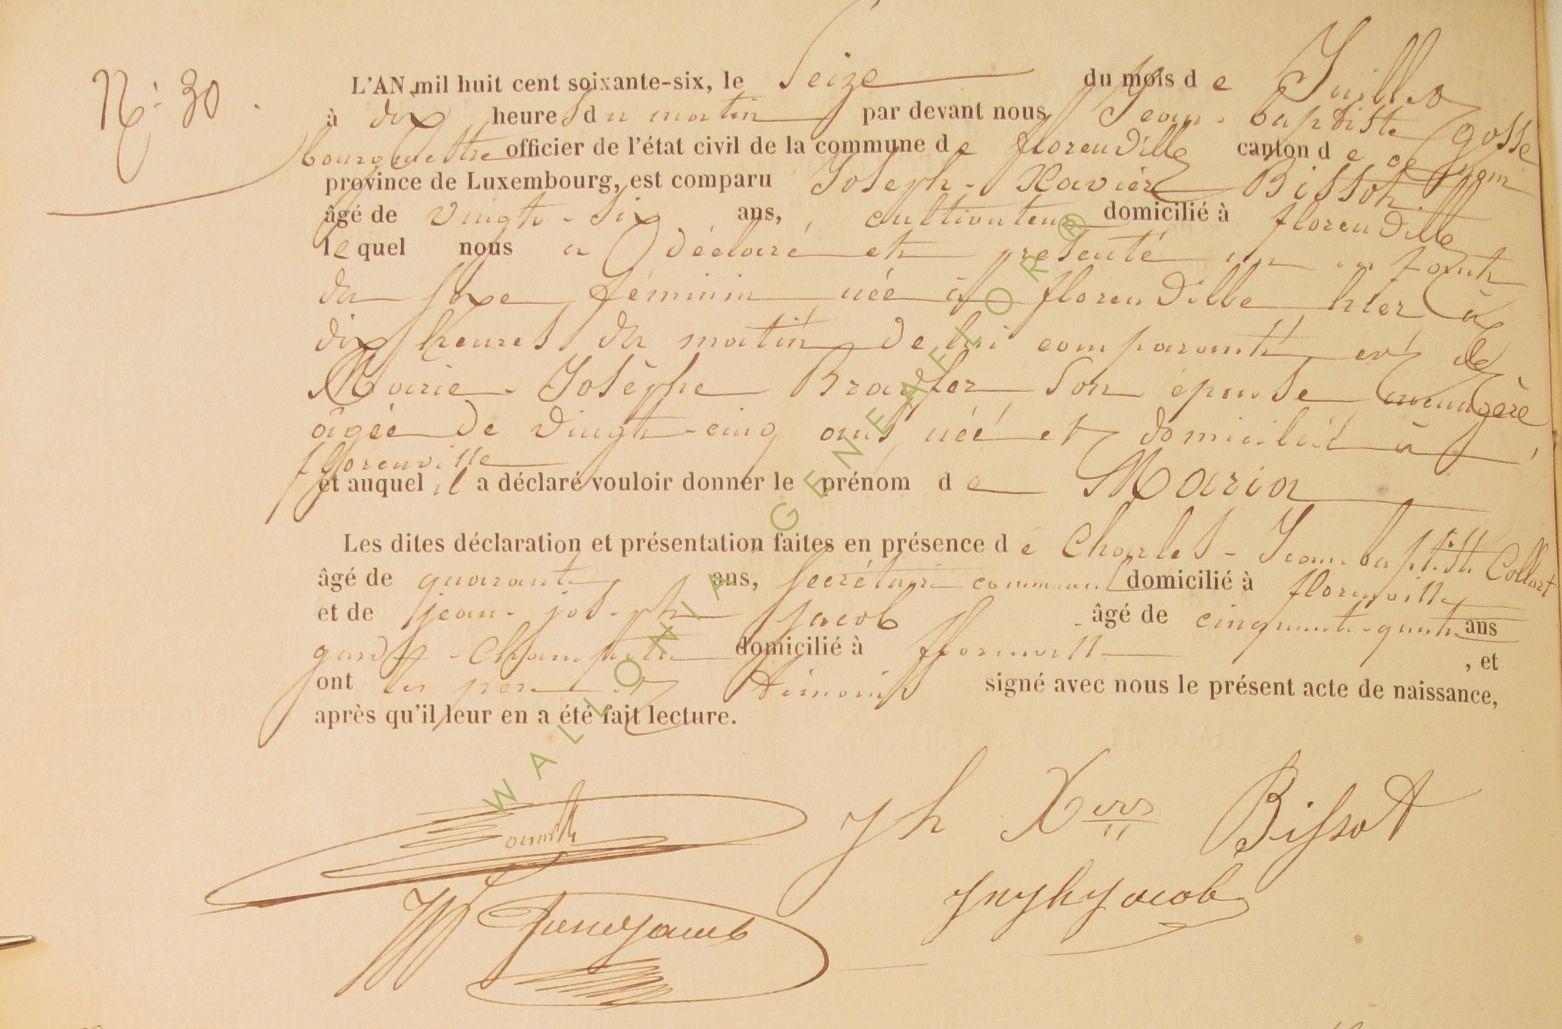 N.° 30
L'AN mil huit cent soixante-six, le Seize du mois de Juillet
à dix heures du matin par devant nous Jean-baptiste Gosse
bourgmestre officier de l'état civil de la commune de florenville canton de ce nom
province de Luxembourg, est comparu Joseph-Xavier Bissot
âgé de vingt-six ans, cultivateur domicilié à florenville
lequel nous a déclaré et présenté un enfant
du sexe féminin née à florenville hier à
dix heures du matin de lui comparant et de
Marie-Josèphe son épouse ménagère
âgée de vingt-cinq ans née et domiciliée à
florenville
et auquel il a déclaré vouloir donner le prénom de Maria
Les dites déclaration et présentation faites en présence de Charles-Jean baptiste Collart
âgé de quarante ans, Secrétaire communal domicilié à florenville
et de jean-joseph jacob âgé de cinquante-quatre ans
garde-Champêtre domicilié à florenville , et
ont les père et témoins signé avec nous le présent acte de naissance,
après qu'il leur en a été fait lecture.
Jh Xer Bissot
Jacob
WALLONIA GENEAFLOR®